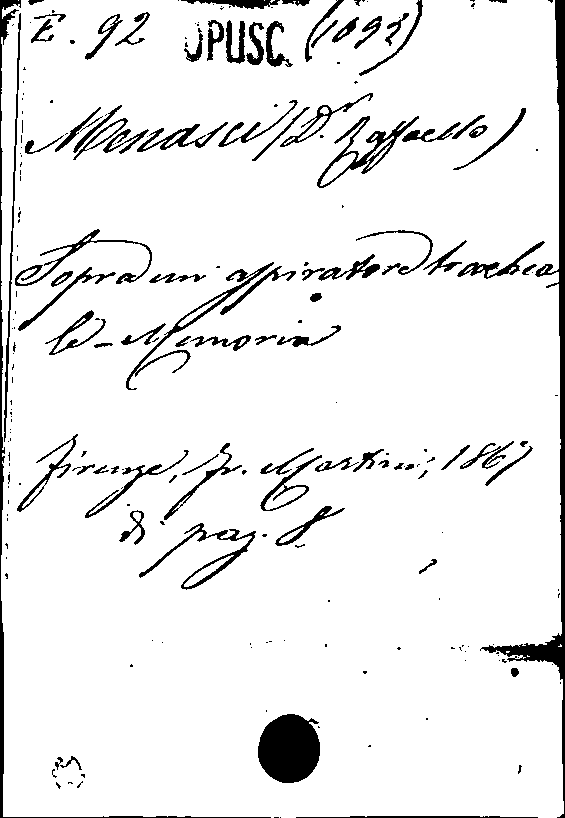 E. 92 OPUSC. (1093)
Menasci (Dr. Raffaello)
Sopra un aspiratore trachea-
le - Memoria
Firenze, Fr. Martini, 1867
di pag. 8